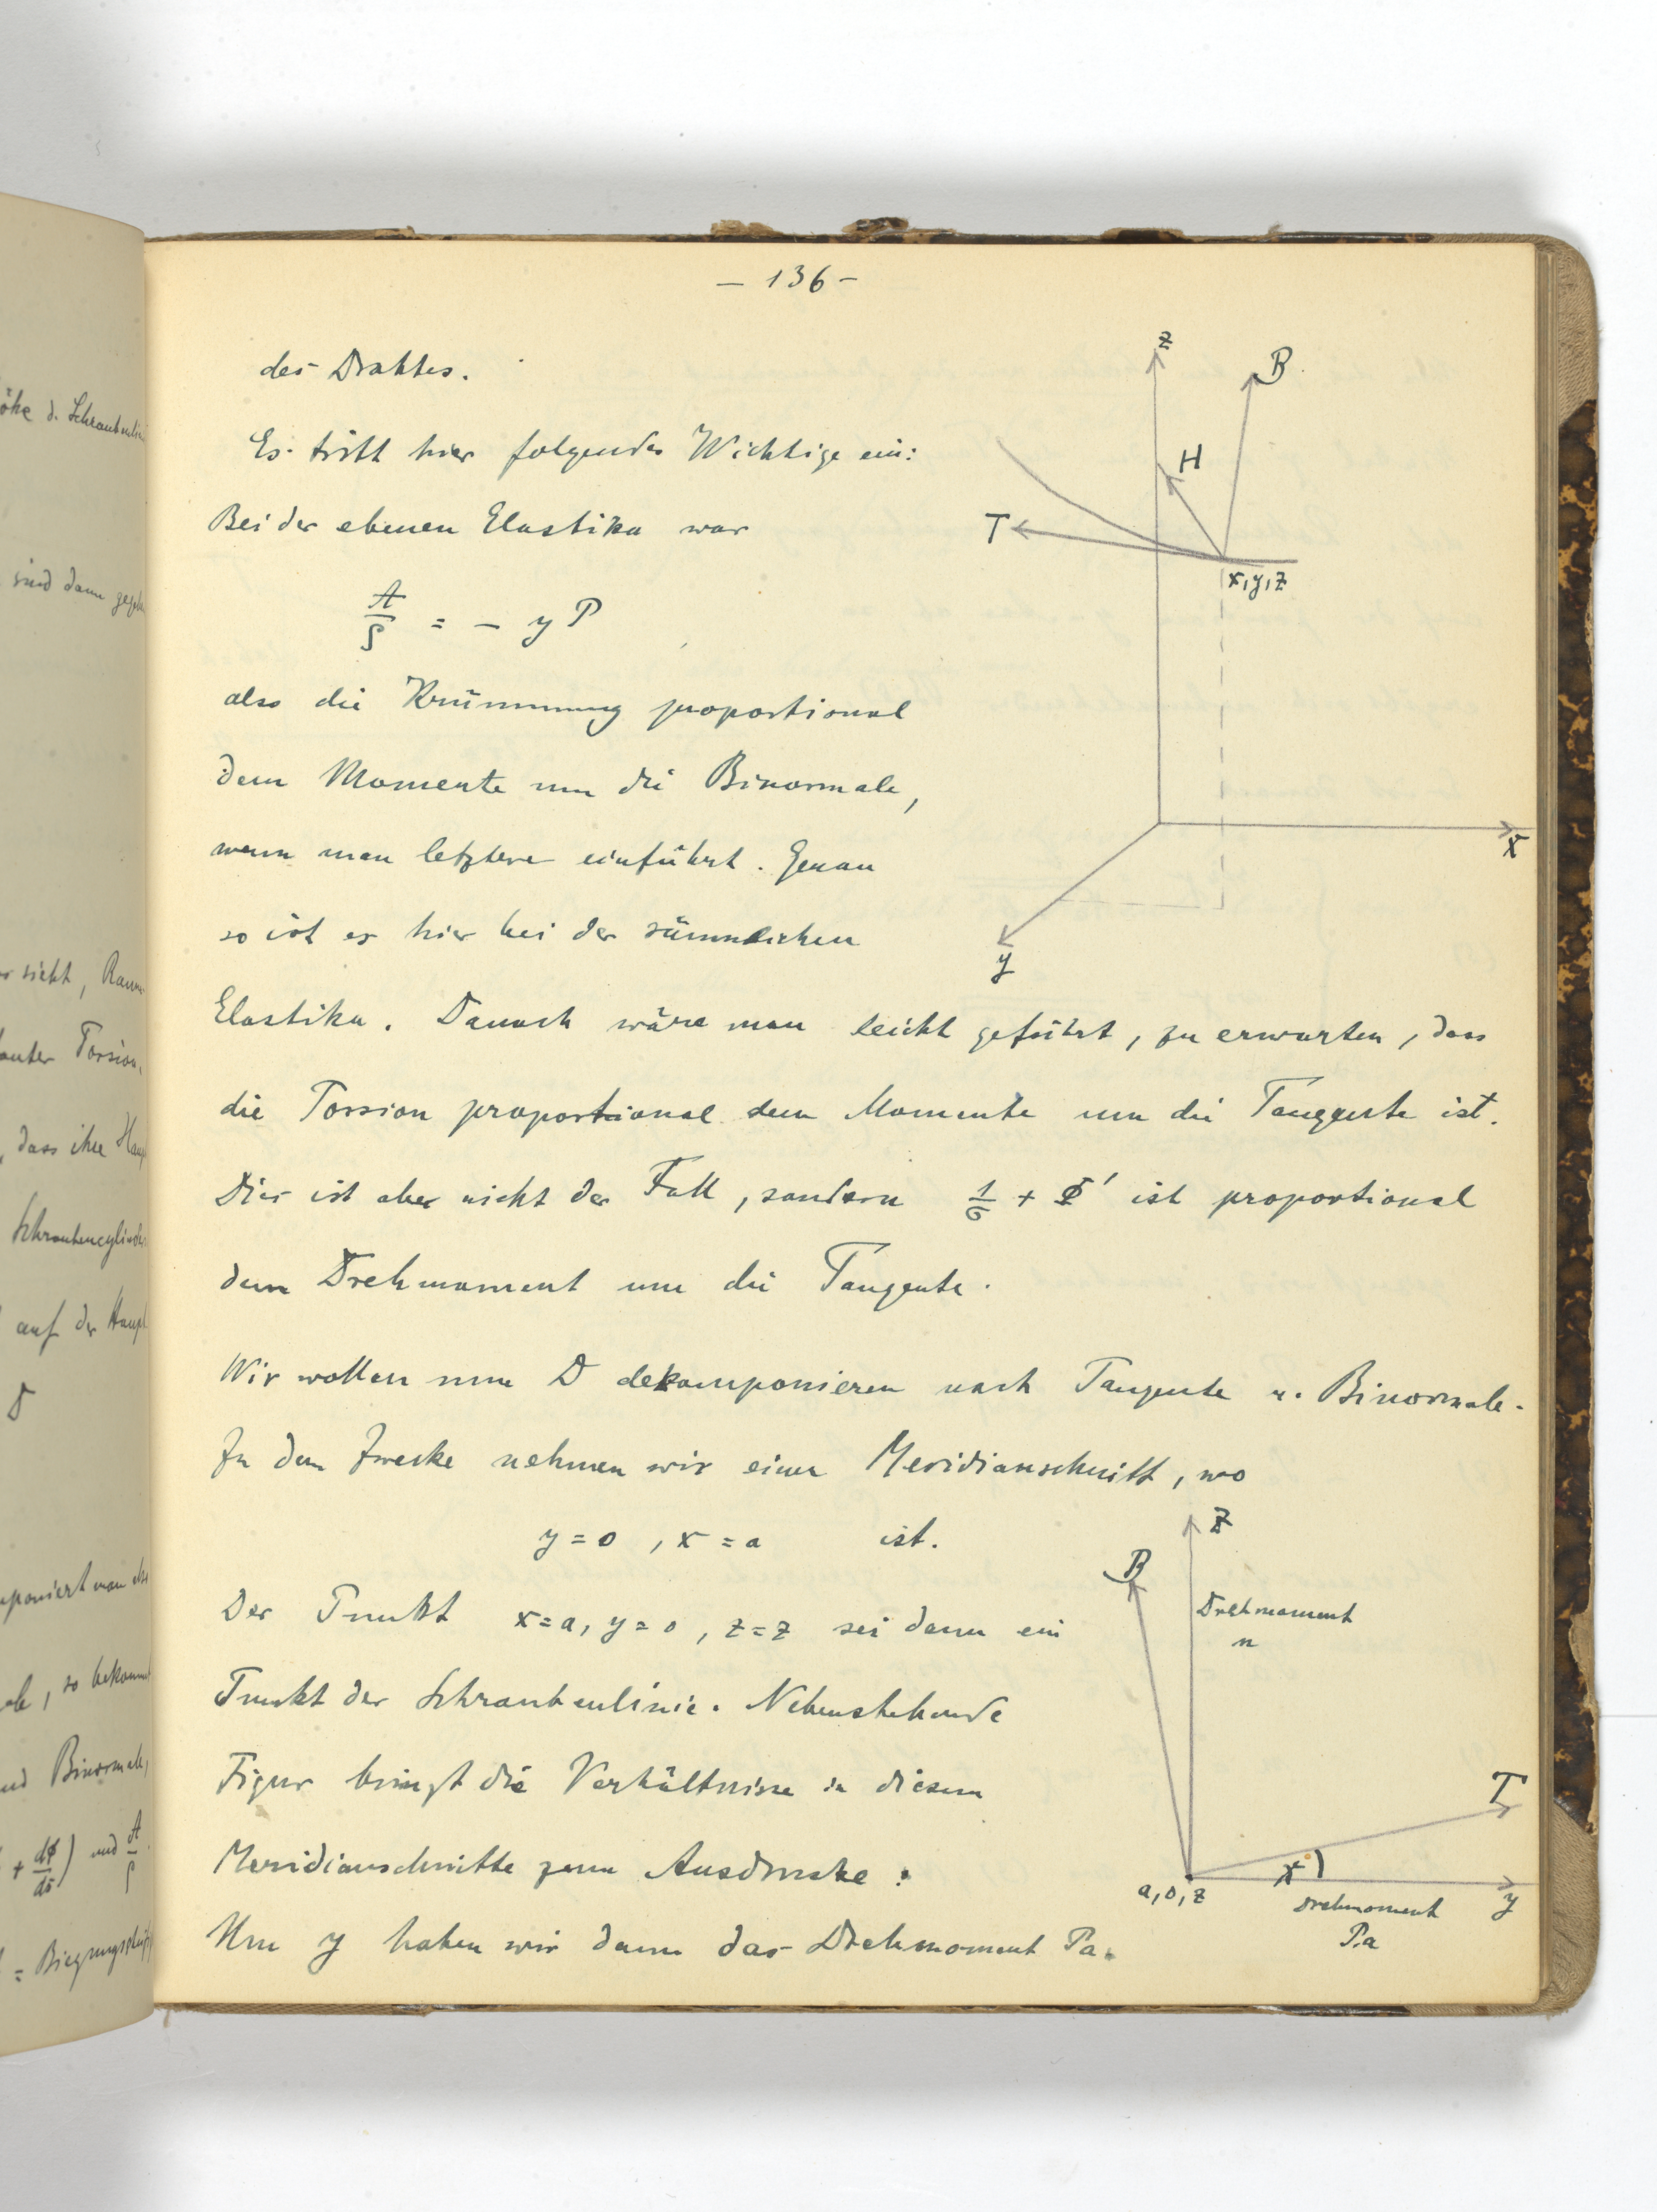 – 136 –
des Drahtes.
Es tritt hier folgendes Wichtige ein:
Bei der ebenen Elastika war
A/ρ = – y P
also die Krümmung proportional
dem Momente um die Binormale,
wenn man letztere einführt. Genau
so ist es hier bei der räumlichen
Elastika. Danach wäre man leicht geführt, zu erwarten, dass
die Torsion proportional dem Momente um die Tangente ist.
Dies ist aber nicht der Fall, sondern 1/σ + Φ' ist proportional
dem Drehmoment um die Tangente.
Wir wollen nun D dekomponieren nach Tangente u. Binormale.
Zu dem Zwecke nehmen wir einen Meridianschnitt, wo
y = 0 , x = a ist.
Der Punkt x = a, y = 0 , z = z sei dann ein
Punkt der Schraubenlinie. Nebenstehende
Figur bringt die Verhältnisse in diesem
Meridianschnitte zum Ausdrucke:
Um y haben wir dann das Drehmoment Pa.
z
B
H
T
x, y, z
x
y
z
B
Drehmoment
n
T
a, 0, z
y
Drehmoment
P.a
öhe d. Schraubenlin
sind dann gege
sieht, Raum
Torsion.
dass ihre Haup
Schraubencylinder
auf der Haupt
D
so bekommt
Binormale,
+ dΦ/ds) und A/ρ
= Biegungs